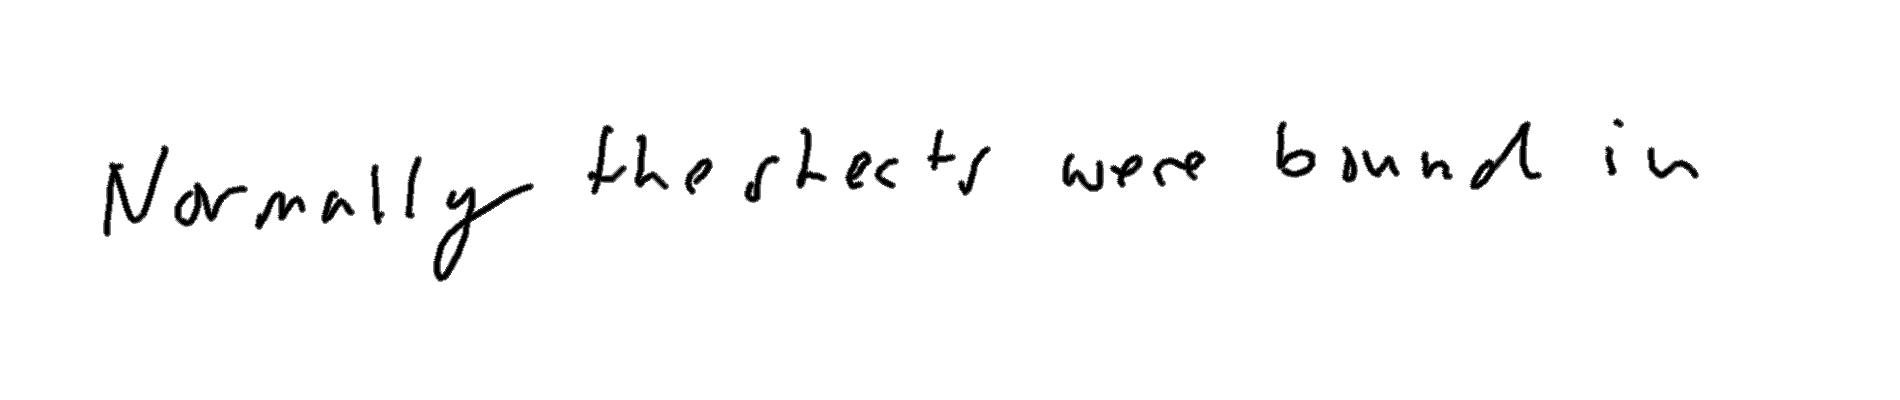 Normally the sheets were bound in